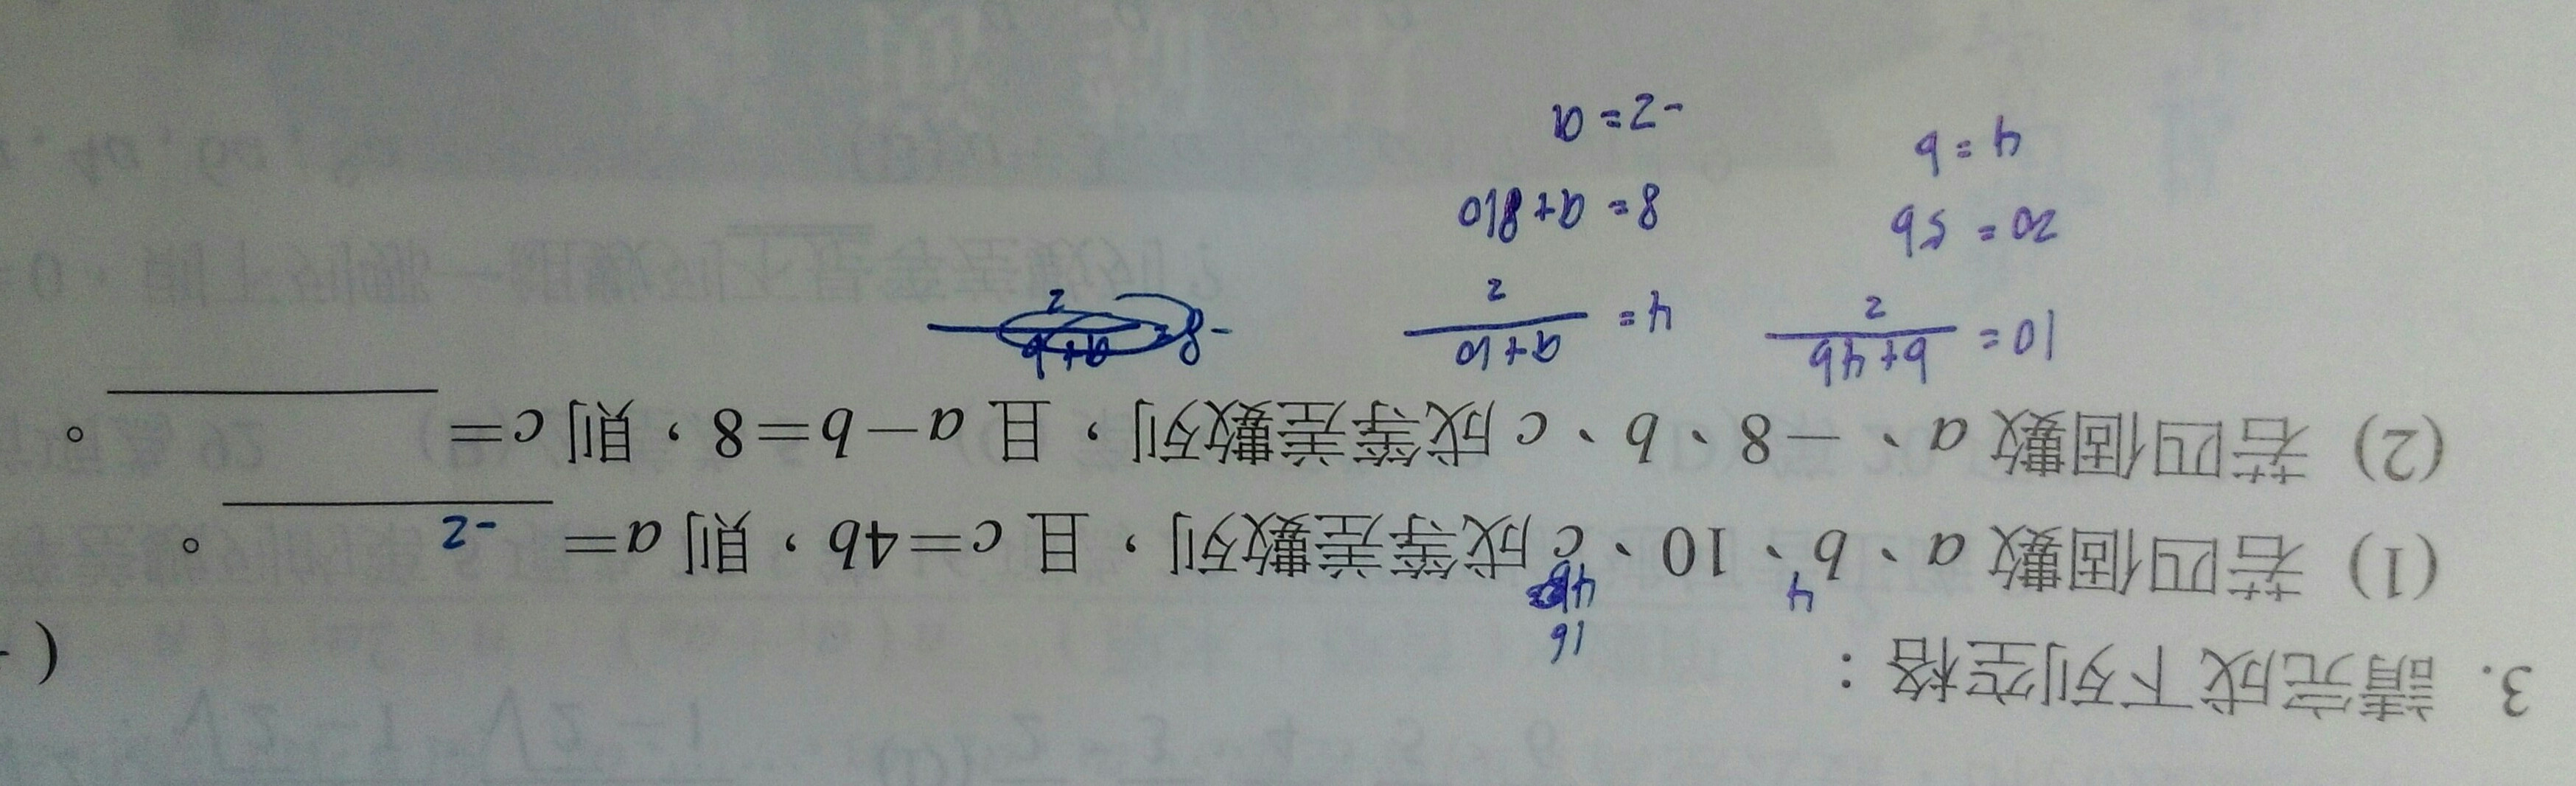 3. 請完成下列空格：
(
16
4 4b
(1) 若四個數 a、b、10、c 成等差數列，且 c=4b，則 a= -2 。
(2) 若四個數 a、-8、b、c 成等差數列，且 a-b=8，則 c= 。
10= b+4b / 2 4= a+10 / 2 -8= a+b / 2
20=5b 8=a+10
4=b -2=a